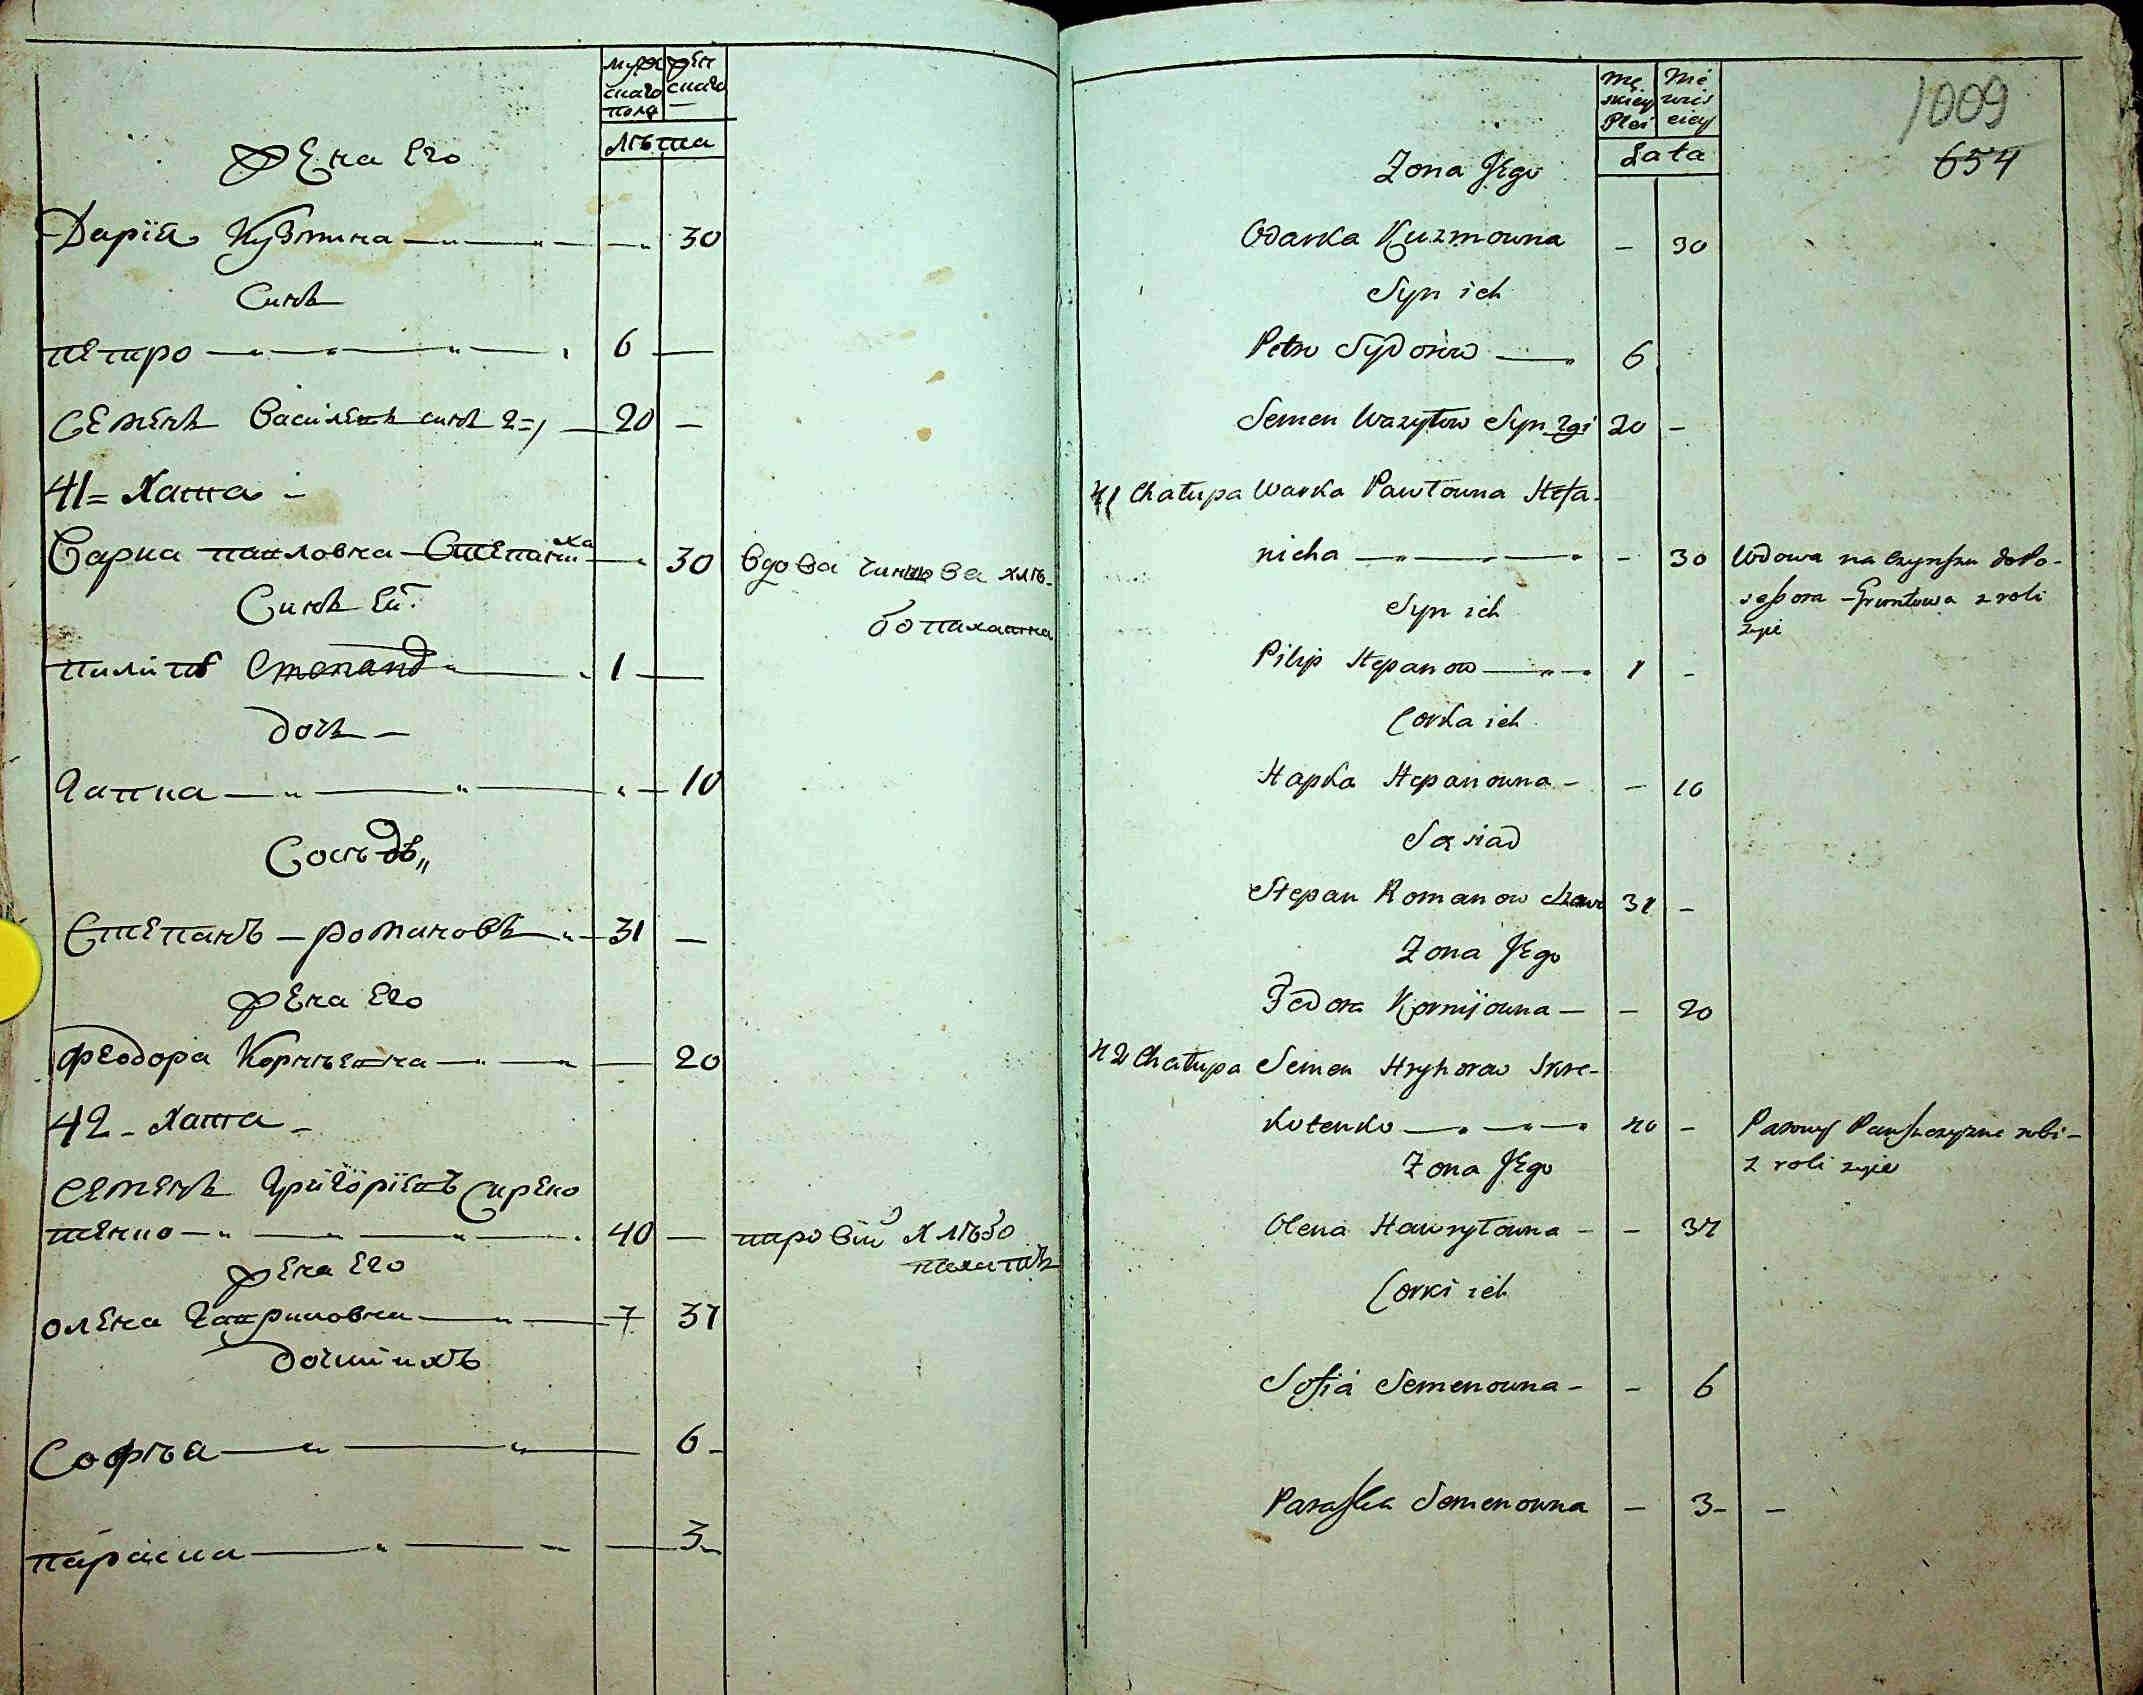 мужскаго пола
женскаго
лѣта
жена его
Дарїя Кузмина — 30
Синъ
петро — 6 —
семенъ Василевъ синъ 2=й — 20 —
41= Хата –
Варка павловна Степаниха — 30 вдова чиншова хлѣ-
бопахатна
Синъ Ей
пилипъ Степановъ — 1 —
дочъ –
Гапка — 10
Сосѣдъ
Степанъ – романовъ — 31 —
жена его
феодора Корнѣевна — 20
42 – хата –
семенъ Григорїевъ Скреко
тенко — 40 — паровій хлѣбо
пахатній
жена его
олена Гавриловна — 37
дочки ихъ
Софѣа — 6 –
параска — 3 –
Męskiey Płci
Niewieściey
Lata
1009
654
Zona Jego
Odarka Kuzmowna – 30
Syn ich
Petro Sydorow — 6
Semen Wazylow Syn 2gi 20 –
41 Chałupa Warka Pawłowna Stefa-
nicha — – 30 Wdowa na czynszu doPo-
sessora – Gruntowa z roli
żyie
Syn ich
Pilip Stepanow — 1 –
Corka ich
Hapka Stepanowna – – 10
Sąsiad
Stepan Romanow 31 –
Zona Jego
Fedora Kornijowna – – 20
42 Chałupa Semen Hryhorow Skre-
kotenko — 40 – Parowy Panszczyznę robi –
z roli żyie
Zona Jego
Olena Hawryłowna – – 37
Corki ich
Sofia Semenowna – – 6
Paraska Semenowna – 3 – –